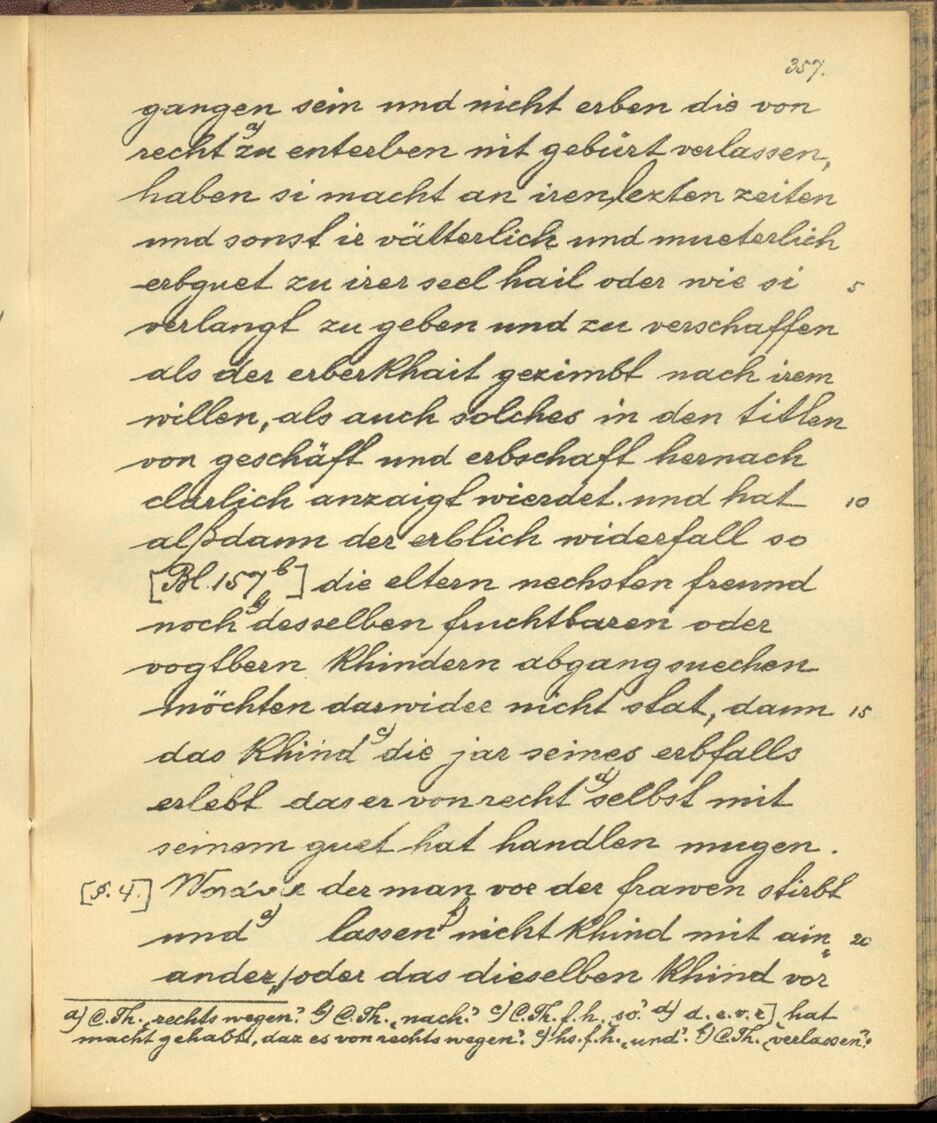 357.
gangen sein und nicht erben die von
recht a) zu enterben nit gebürt verlassen,
haben si macht an iren lezten zeiten
und sonst ir vätterlich und mueterlich
erbguet zu irer seel hail oder wie si 5
verlangt zu geben und zu verschaffen
als der erberkhait gezimbt nach irem
willen, als auch solches in den titlen
von geschäft und erbschaft hernach
clarlich anzaigt wierdet. und hat 10
alßdann der erblich widerfall so
[Bl. 157 b] die eltern nechsten freund
noch b) desselben fruchtbaren oder
vogtbern khindern abgang suechen
möchten darwider nicht stat, dann 15
das khind c) die jar seines erbfalls
erlebt das er von recht d) selbst mit
seinem guet hat handlen mugen.
[§. 4.] der man vor der frawen stirbt
und e) lassen f) nicht khind mit ain 20
ander, oder das dieselben khind vor
a) C. Th. „rechts wegen". b) C. Th. „nach". c) C. Th. f. h. „so". d) d. e. v. r.] hat
macht gehabt, daz es von rechts wegen". e) hs. f. h. „und". f) C. Th. „verlassen".